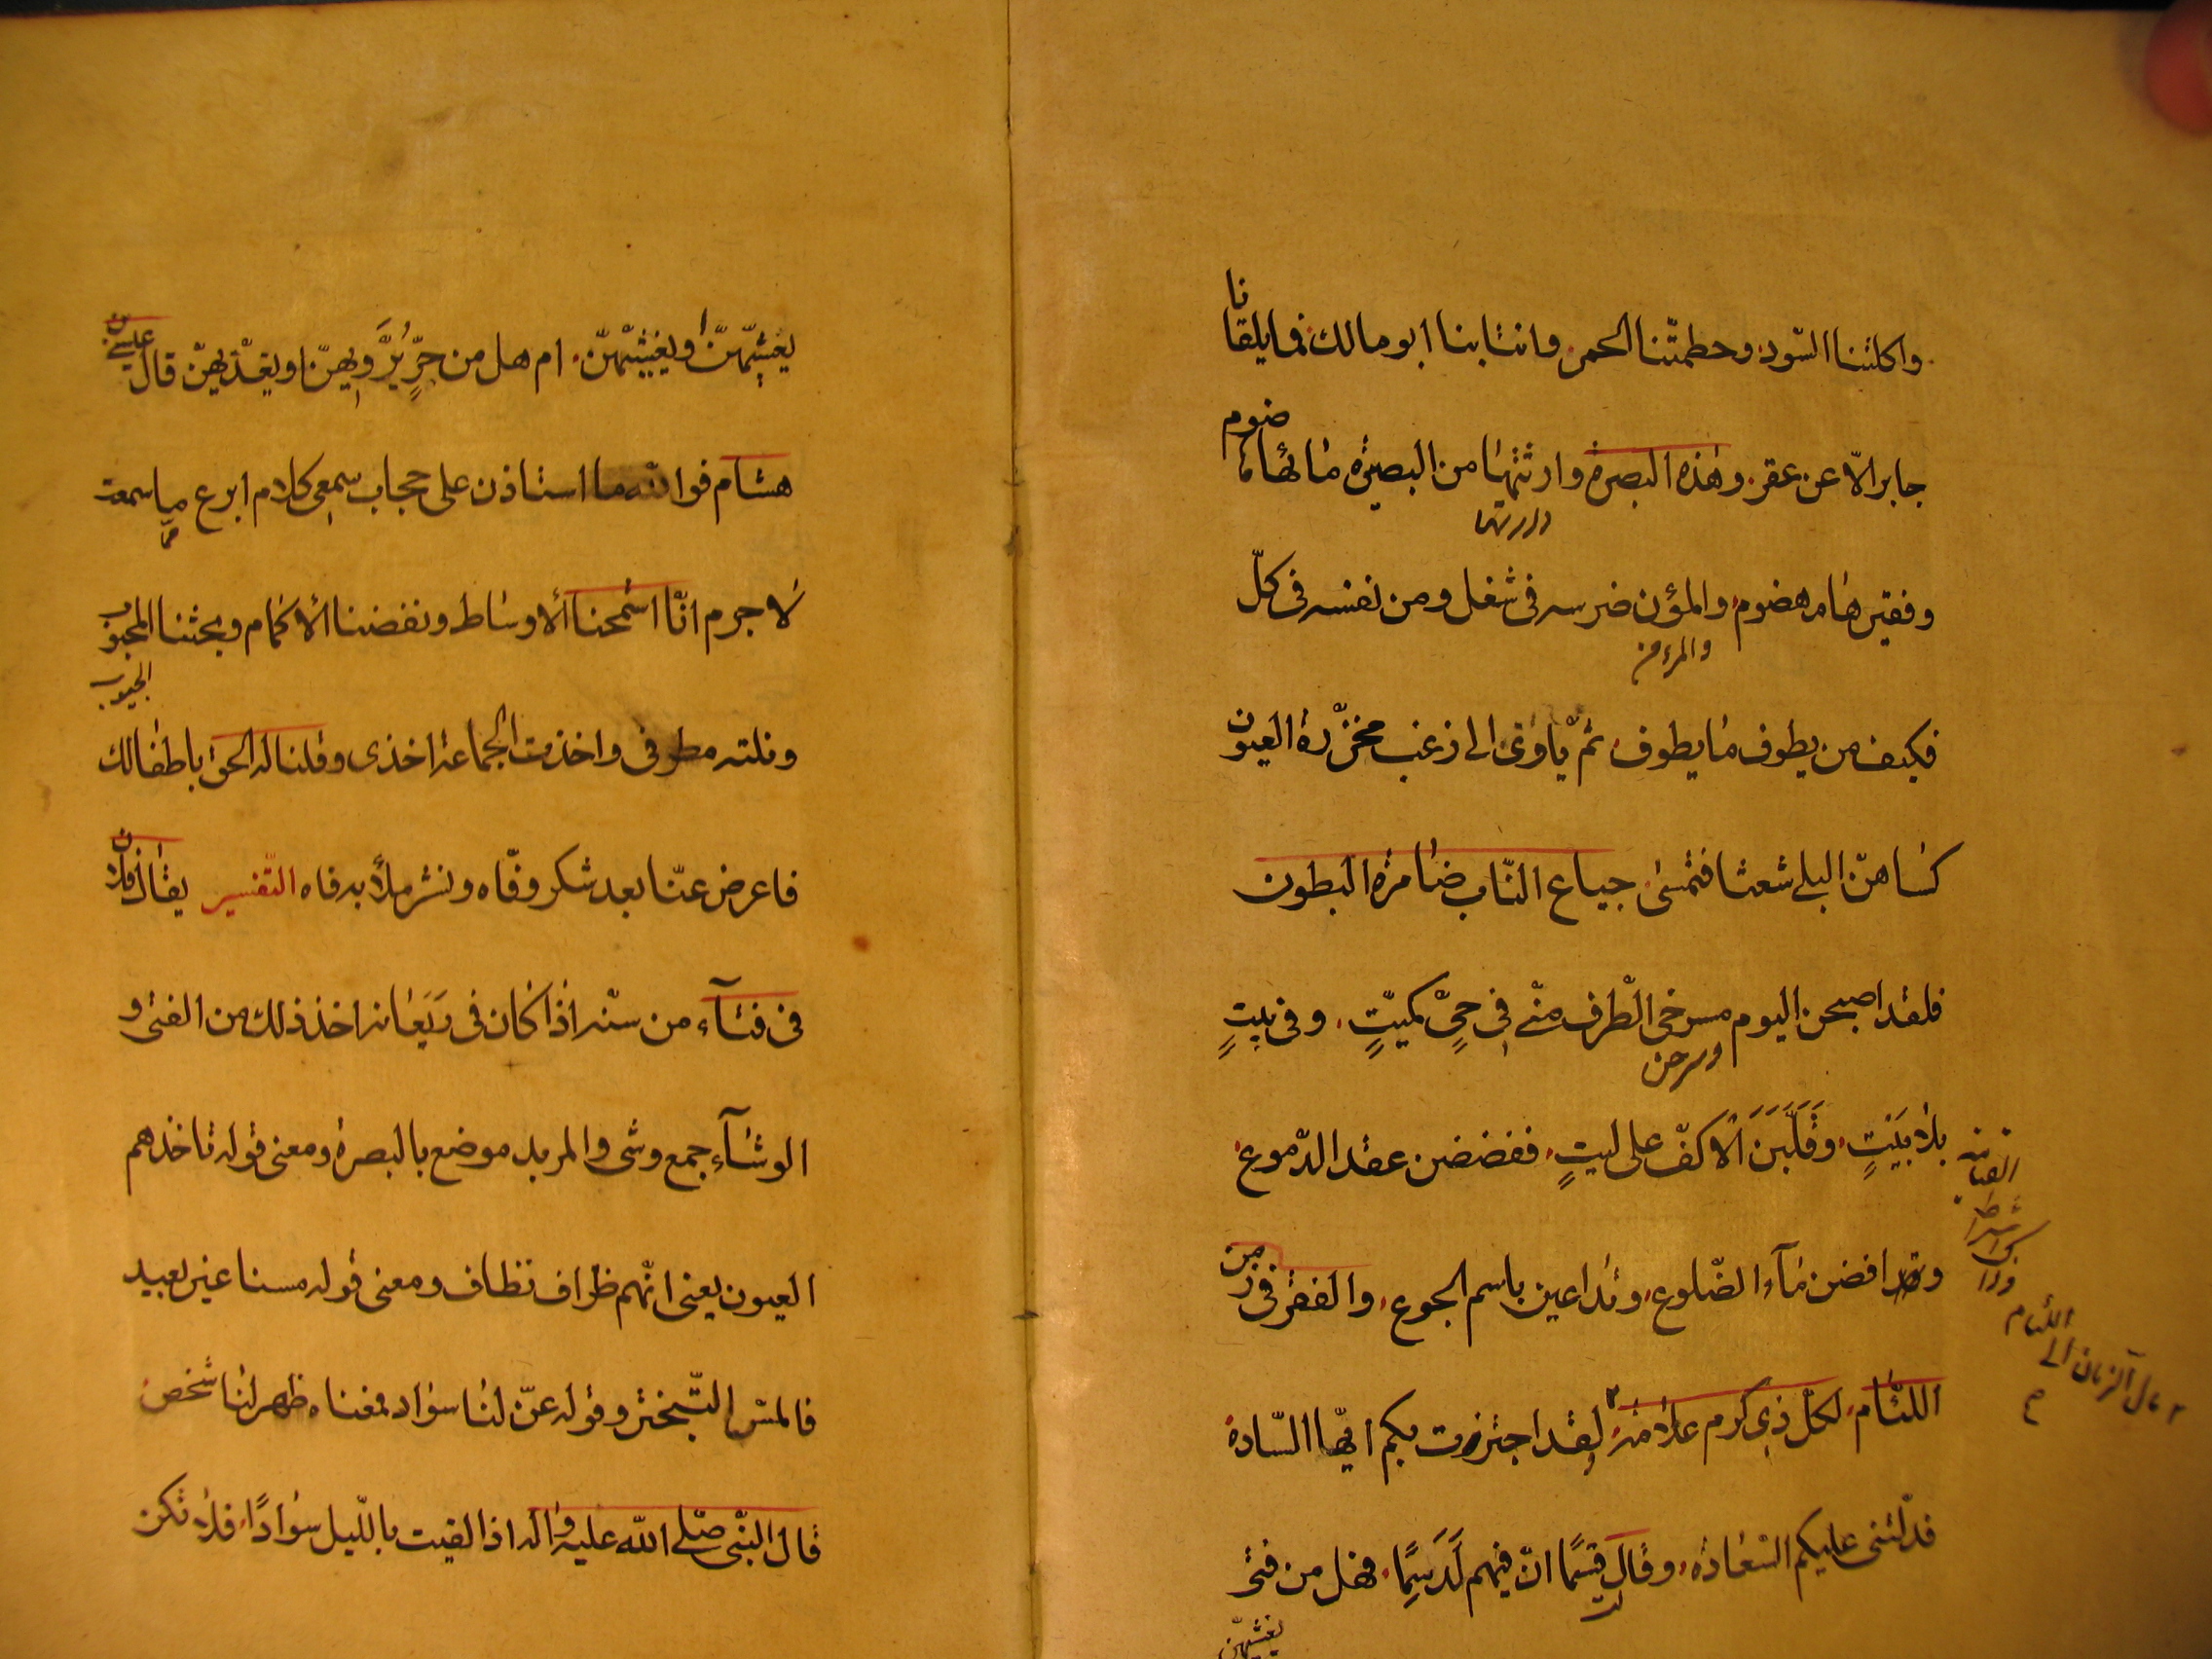 واكلتنا السّود وحطمتّنا الحمر وانتابنا ابو مالك فما يلقانا
جابر الاّ عن عقر وهذه البصرة مائها هضوم
وفقيرها مهضوم والمؤن ضرسه فى شغل ومن نفسه فى كلّ
والمرء من
فكيف من يطوف ما يطوف ثمّ ياوى الى زغب محمّرة العيون
كساهنّ البلى شعثا فتمسى جياع النّاب ضامرة البطون
فلقد اصبحن اليوم مسرخى الطّرف منّى فى حىّ كميّتٍ وفى بيتٍ
وسرحن
بلا بَيَتٍ وقَلَّبَنَ الاكفّ على ليتٍ ففضضن عقد الدّموع
افضن مآء الضّلوع وتداعين باسم الجوع والفقر فى زمن
اللئام لكلّ ذى كرم علامة لقد اجتزت بكم ايّها السّادة
فدلّتنى عليكم السّعادة وقال قسمًا انّ فيهم لَدَسِمًا فهل من فتى
يعشيهنّ
يعشيّهنّ ويغشيّهنّ ام هل من حرٍّ او يغدّيهنّ قال عيسى بن
هشام فوالله ما استاذن على حجاب سمعى كلام ابرع ما سمعت
ممّا
لا جرم انّا استمحنا الاوساط ونفضنا الاكمام وبحثنا الجيوب
الجيوب
ونلته مطرفى واخذت الجماعة اخذى وقلنا له الحق باطفالك
فاعرض عنّا بعد شكر وفّاه ونشر ملأ به فاه التّفسير يقال فلان
فى فتآء من سنّه اذا كان فى رَيَعانه اخذ ذلك من الفتى و
الوشآء جمع وشى والمربد موضع بالبصرة ومعنى قوله تاخذهم
العيون يعنى انّهم ظراف نظاف ومعنى قوله مسنا غير بعيد
فالمسّ التّبختر وقوله عنّ لنا سواد فمعناه ظهر لنا شخص
قال النّبى صلّى الله عليه واله اذا لقيت باللّيل سوادًا فلا تكن